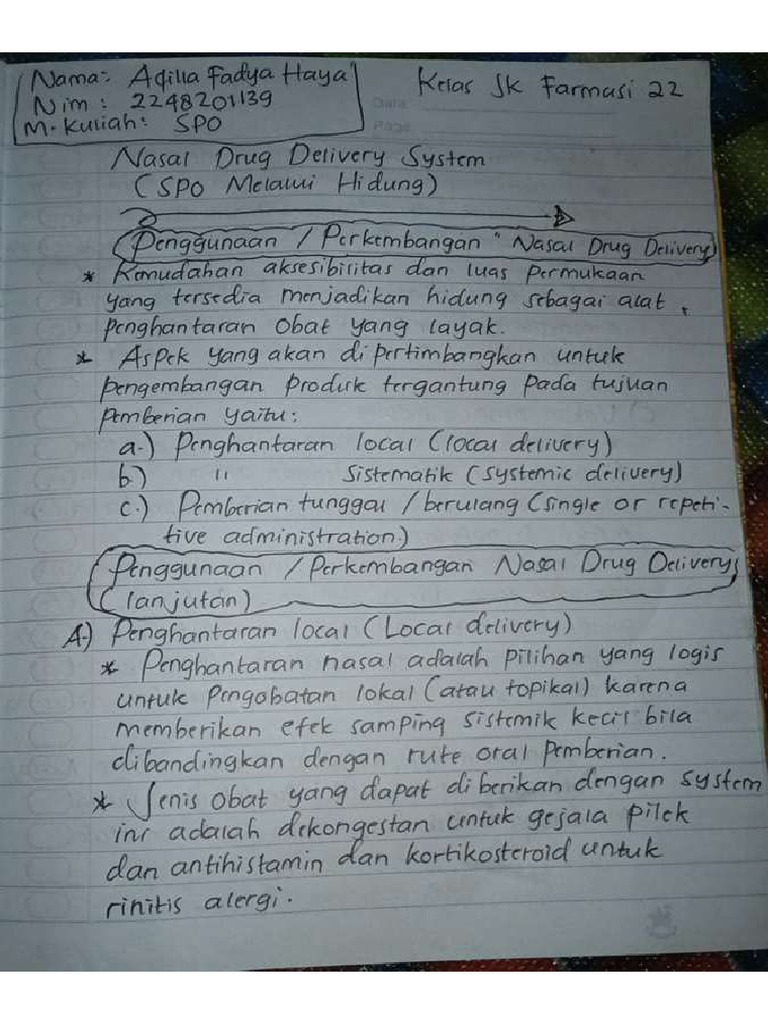 Nama: Aqilla Fadya Haya
Kelas SK Farmasi 22
Nim : 2248201139
M. Kuliah: SPO
Date
Page
Nasal Drug Delivery System
(SPO Melalui Hidung)
Penggunaan / Perkembangan "Nasal Drug Delivery
* Kemudahan aksesibilitas dan luas permukaan
yang tersedia menjadikan hidung sebagai alat
penghantaran obat yang layak.
* Aspek yang akan dipertimbangkan untuk
pengembangan produk tergantung pada tujuan
pemberian yaitu:
a.) Penghantaran local (local delivery)
b.) " Sistematik (systemic delivery)
c.) Pemberian tunggal / berulang (single or repeti-
tive administration)
Penggunaan / Perkembangan Nasal Drug Delivery
(lanjutan)
A.) Penghantaran local (Local delivery)
* Penghantaran nasal adalah pilihan yang logis
untuk pengobatan lokal (atau topikal) karena
memberikan efek samping sistemik kecil bila
dibandingkan dengan rute oral pemberian.
* Jenis obat yang dapat diberikan dengan system
ini adalah dekongestan untuk gejala pilek
dan antihistamin dan kortikosteroid untuk
rinitis alergi.